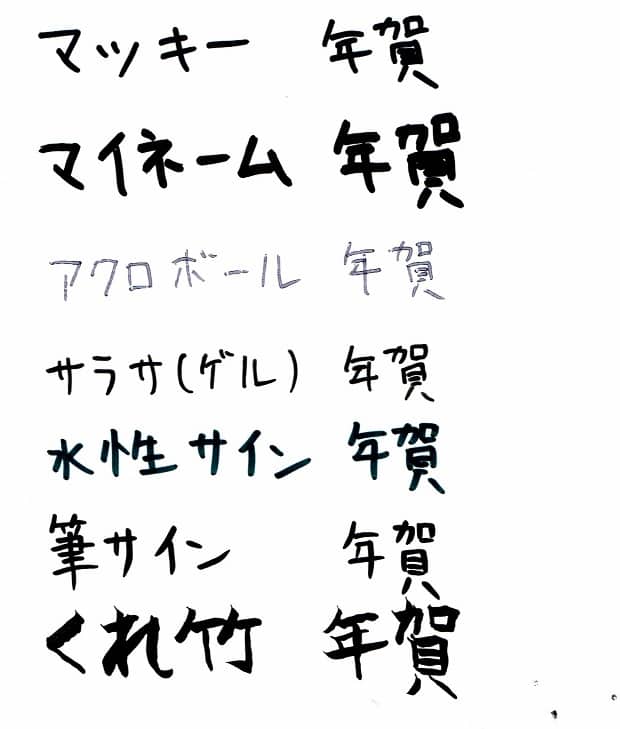 マッキー 年賀
マイネーム 年賀
アクロボール 年賀
サラサ(ゲル) 年賀
水性サイン 年賀
筆サイン 年賀
くれ竹 年賀